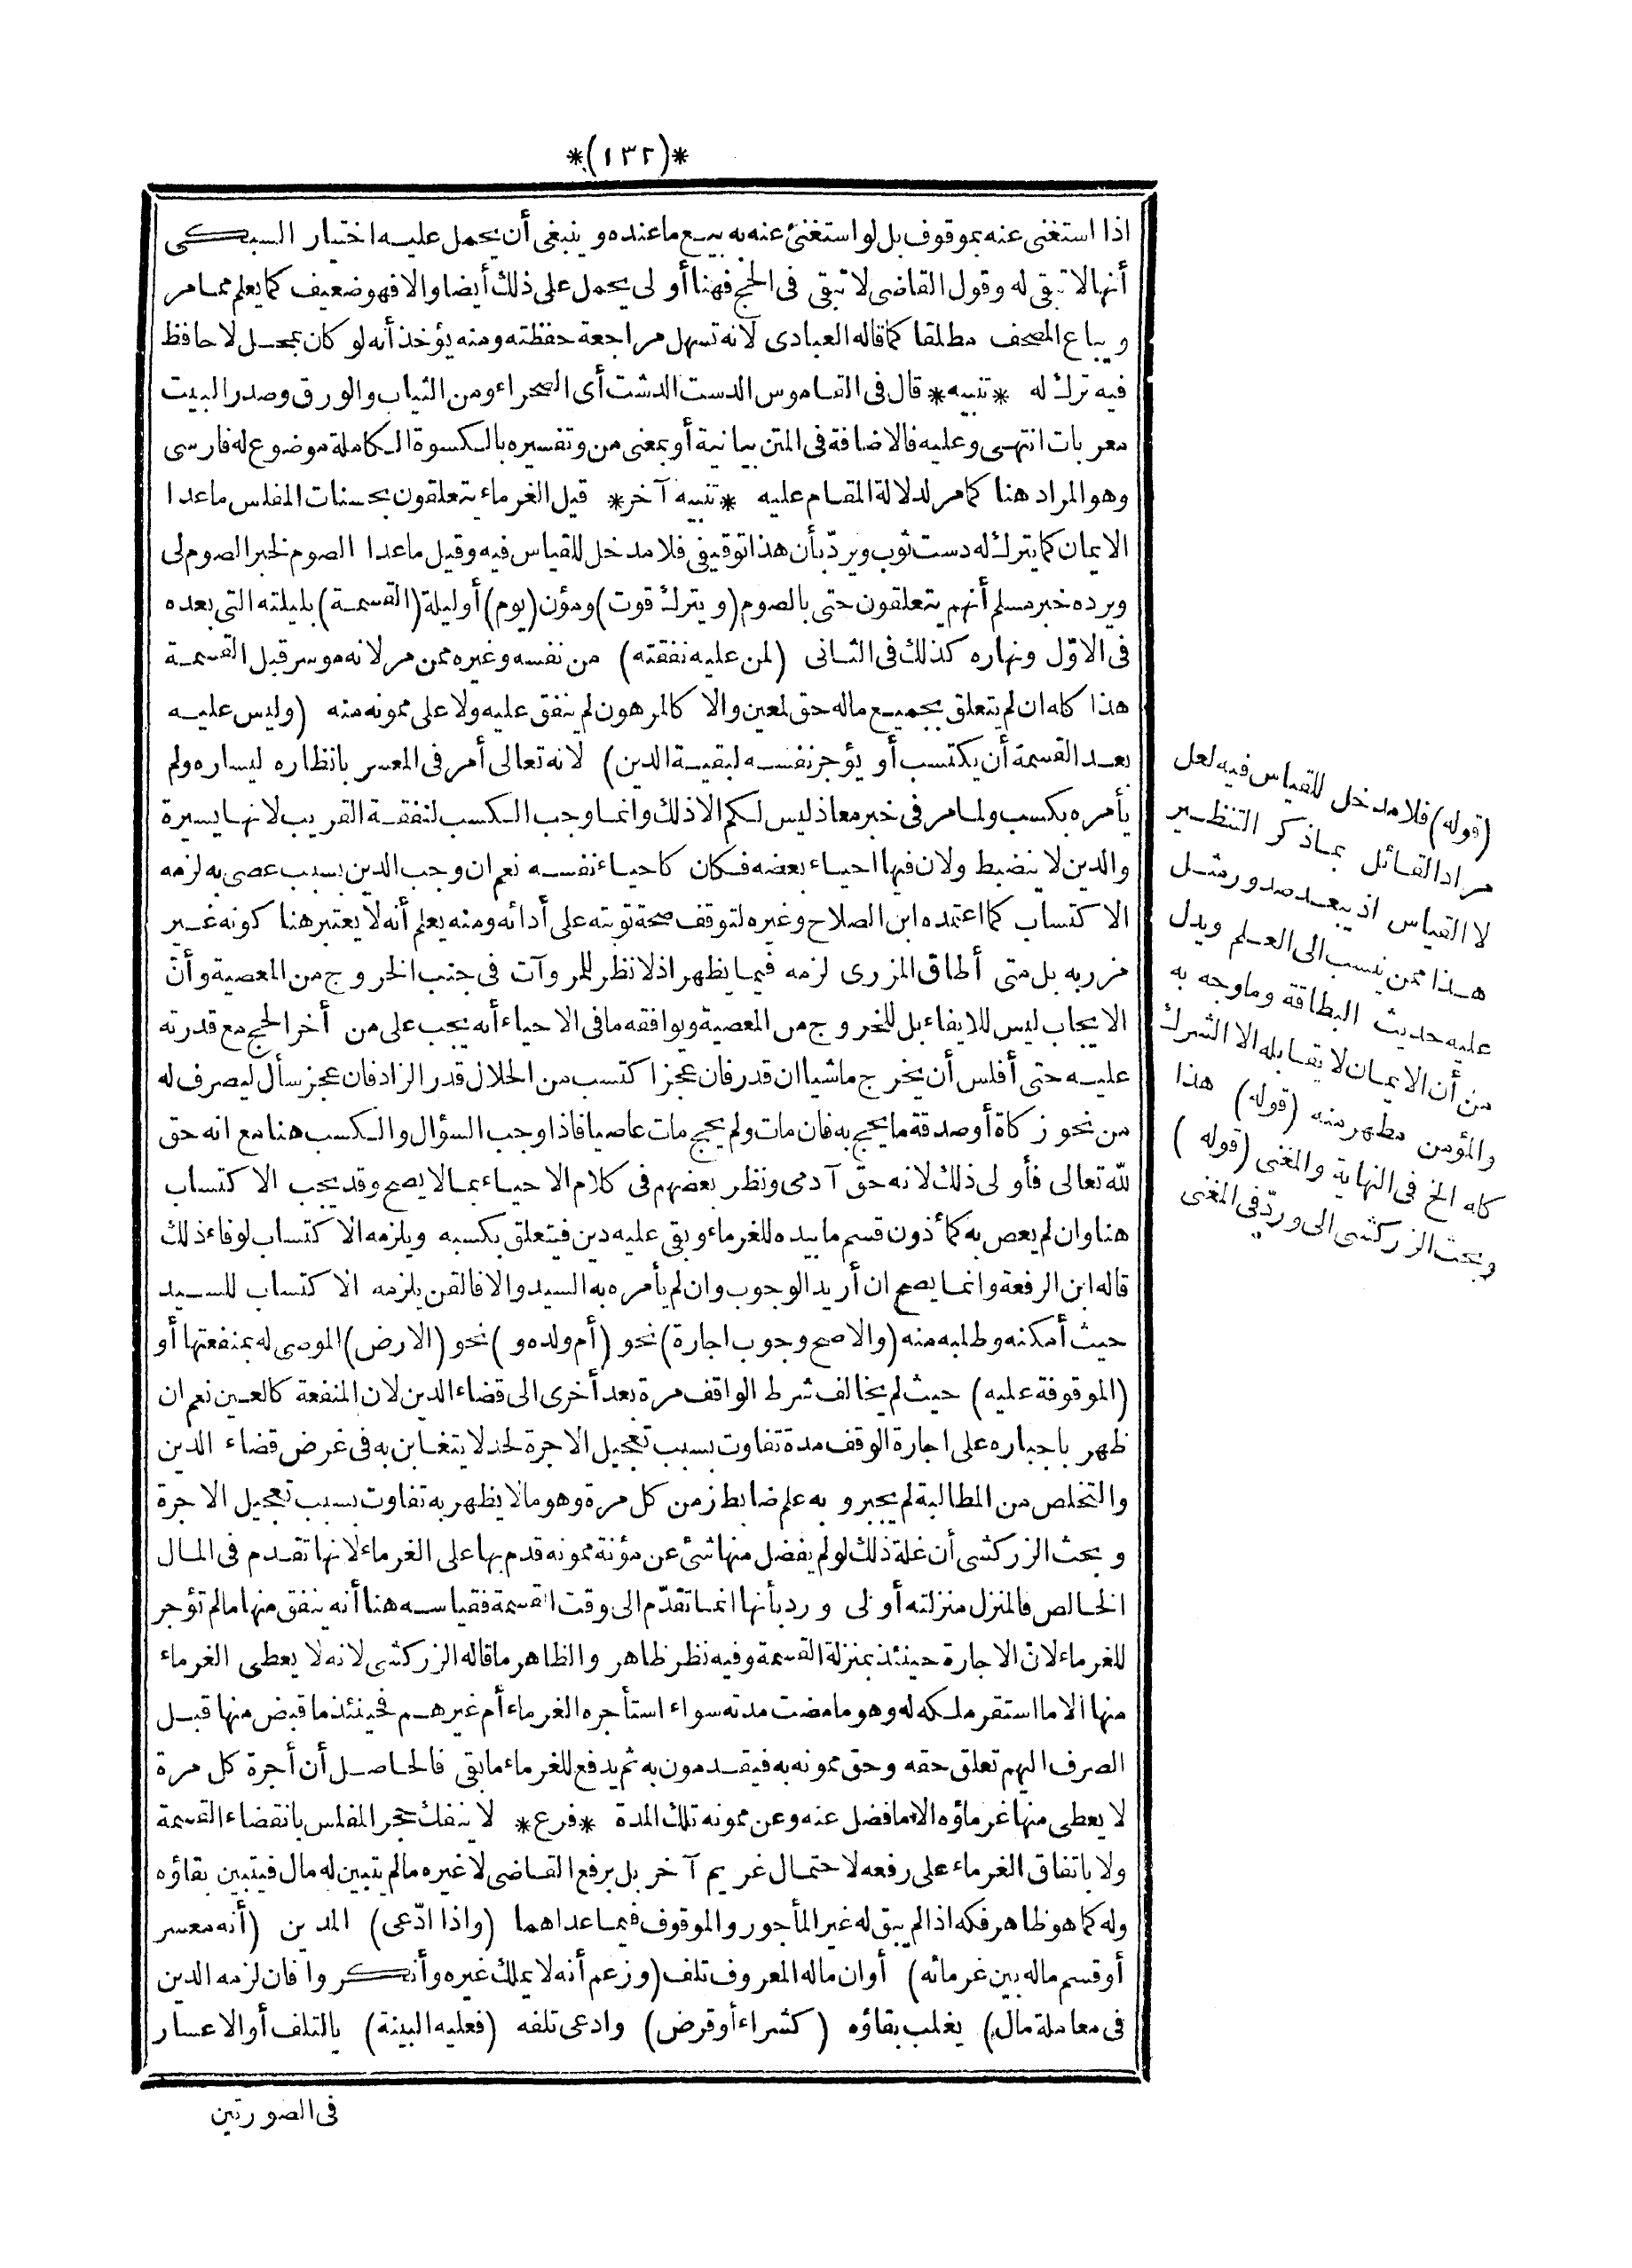 *(١٣٢)*
اذا استغنى عنه بموقوف بل لو استغنى عنه به بيع ما عنده و ينبغى أن يحمل عليه اختيار السبكى
أنها لا تبقى له وقول القاضى لا تبقى فى الحج فهنا أولى يحمل على ذلك أيضا والا فهو ضعيف كما يعلم مما مر
ويباع المصحف مطلقا كما قاله العبادى لانه تسهل مراجعة حفظته ومنه يؤخذ أنه لو كان بمحل لا حافظ
فيه ترك له *تنبيه* قال فى القاموس الدست الدشت أى الصحراء ومن الثياب والورق وصدر البيت
معربات انتهى وعليه فالاضافة فى المتن بيانية أو بمعنى من وتفسيره بالكسوة الكاملة موضوع له فارسى
وهو المراد هنا كما مر لدلالة المقام عليه *تنبيه آخر* قيل الغرماء يتعلقون بحسنات المفلس ماعدا
الايمان كما يترك له دست ثوب ويردّ بأن هذا توقيفى فلا مدخل للقياس فيه وقيل ماعدا الصوم لخبر الصوم لى
ويرده خبر مسلم أنهم يتعلقون حتى بالصوم (ويترك قوت) ومؤن (يوم) أوليلة (القسمة) بليلته التى بعده
فى الاوّل ونهاره كذلك فى الثانى (لمن عليه نفقته) من نفسه وغيره ممن مر لانه موسر قبل القسمة
هذا كله ان لم يتعلق بجميع ماله حق لمعين والا كالمرهون لم ينفق عليه ولا على ممونه منه (وليس عليه
بعد القسمة أن يكتسب أو يؤجر نفسه لبقية الدين) لانه تعالى أمر فى المعسر بانظاره ليساره ولم
يأمره بكسب ولما مر فى خبر معاذ ليس لكم الا ذلك وانما وجب الكسب لنفقة القريب لانها يسيرة
والدين لا ينضبط ولان فيها احياء بعضه فكان كاحياء نفسه نعم ان وجب الدين بسبب عصى به لزمه
الاكتساب كما اعتمده ابن الصلاح وغيره لتوقف صحة توبته على أدائه ومنه يعلم أنه لا يعتبر هنا كونه غير
مزر به بل متى أطاق المزرى لزمه فيما يظهر اذ لا نظر للمروآت فى جنب الخروج من المعصية وأنّ
الايجاب ليس للايفاء بل للخروج من المعصية ويوافقه ما فى الاحياء أنه يجب على من أخر الحج مع قدرته
عليه حتى أفلس أن يخرج ماشيا ان قدر فان عجز اكتسب من الحلال قدر الزاد فان عجز سأل ليصرف له
من نحو زكاة أو صدقة ما يحج به فان مات ولم يحج مات عاصيا فاذا وجب السؤال والكسب هنا مع انه حق
لله تعالى فأولى ذلك لانه حق آدمى ونظر بعضهم فى كلام الاحياء بما لا يصح وقد يجب الاكتساب
هنا وان لم يعص به كمأذون قسم ما بيده للغرماء وبقى عليه دين فيتعلق بكسبه ويلزمه الاكتساب لوفاء ذلك
قاله ابن الرفعة وانما يصح ان أريد الوجوب وان لم يأمره به السيد والا فالقن يلزمه الاكتساب للسيد
حيث أمكنه وطلبه منه (والاصح وجوب اجارة) نحو (أم ولده و) نحو (الارض) الموصى له بمنفعتها أو
(الموقوفة عليه) حيث لم يخالف شرط الواقف مرة بعد أخرى الى قضاء الدين لان المنفعة كالعين نعم ان
ظهر باجباره على اجارة الوقف مدة تفاوت بسبب تعجيل الاجرة لحد لا يتغابن به فى غرض قضاء الدين
والتخلص من المطالبة لم يجبر و به علم ضابط زمن كل مرة وهو ما لا يظهر به تفاوت بسبب تعجيل الاجرة
وبحث الزركشى أن غلة ذلك لو لم يفضل منها شئ عن مؤنة ممونه قدم بها على الغرماء لانها تقدم فى المال
الخالص فالمنزل منزلته أولى ورد بأنها انما تقدّم الى وقت القسمة فقياسه هنا أنه ينفق منها ما لم تؤجر
للغرماء لانّ الاجارة حينئذ بمنزلة القسمة وفيه نظر ظاهر والظاهر ما قاله الزركشى لانه لا يعطى الغرماء
منها الا ما استقر ملكه له وهو ما مضت مدته سواء استأجره الغرماء أم غيرهم فحينئذ ما قبض منها قبل
الصرف اليهم تعلق حقه وحق ممونه به فيقدمون به ثم يدفع للغرماء ما بقى فالحاصل أن أجرة كل مرة
لا يعطى منها غرماؤه الا ما فضل عنه وعن ممونه تلك المدة *فرع* لا ينفك حجر المفلس بانقضاء القسمة
ولا باتفاق الغرماء على رفعه لاحتمال غريم آخر بل برفع القاضى لا غيره ما لم يتبين له مال فيتبين بقاؤه
وله كما هو ظاهر فكه اذا لم يبق له غير المأجور والموقوف فيما عداهما (واذا ادّعى) المدين (أنه معسر
أو قسم ماله بين غرمائه) أو ان ماله المعروف تلف (وزعم أنه لا يملك غيره وأنكروا فان لزمه الدين
فى معاملة مال) يغلب بقاؤه (كشراء أو قرض) وادعى تلفه (فعليه البينة) بالتلف أو الاعسار
فى الصورتين
(قوله) فلا مدخل للقياس فيه لعل
مراد القائل بما ذكر التنظير
لا القياس اذ يبعد صدور مثل
هذا ممن ينسب الى العلم ويدل
عليه حديث البطاقة وما وجه به
من أن الايمان لا يقابله الا الشرك
والمؤمن مطهر منه (قوله) هذا
كله الخ فى النهاية والمغنى (قوله)
وبحث الزركشى الى وردّ فى المغنى